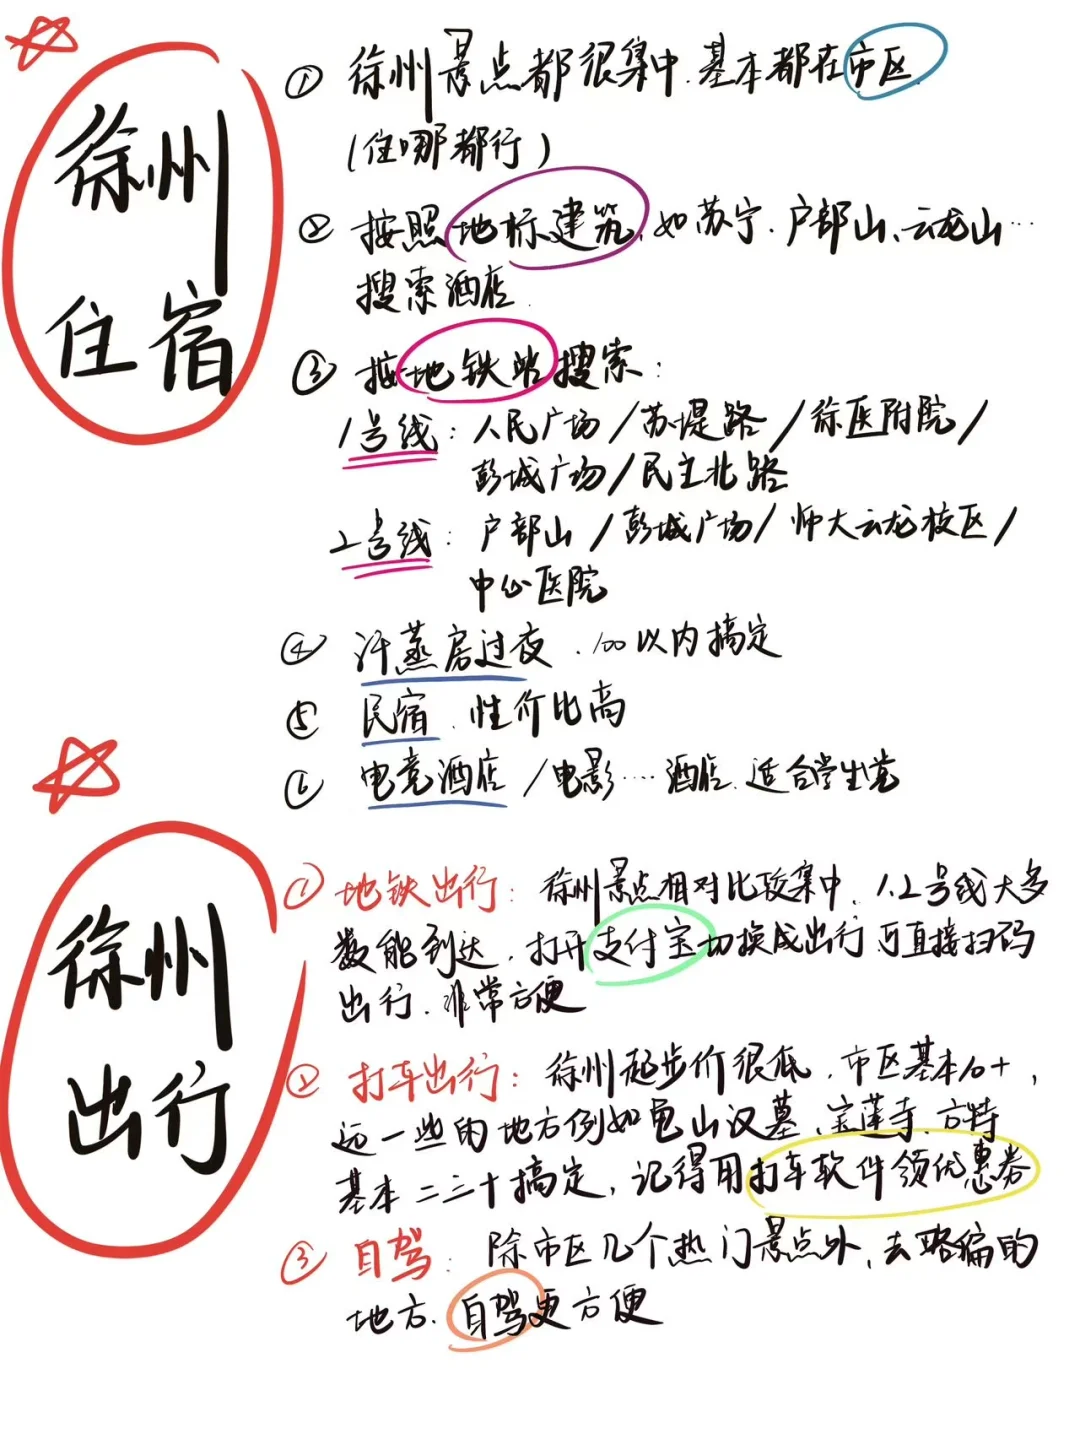 徐州
住宿
① 徐州景点都很集中.基本都在市区
(住哪都行)
② 按照地标建筑,如苏宁.户部山、云龙山…
搜索酒店.
③ 按地铁站搜索:
1号线: 人民广场/苏堤路/徐医附院/
彭城广场/民主北路
2号线: 户部山/彭城广场/师大云龙校区/
中心医院
④ 汗蒸房过夜.100以内搞定
⑤ 民宿.性价比高
⑥ 电竞酒店/电影…酒店.适合学生党
徐州
出行
① 地铁出行: 徐州景点相对比较集中.1.2号线大多
数能到达,打开支付宝切换成出行可直接扫码
出行.非常方便
② 打车出行: 徐州起步价很低.市区基本10+,
远一些的地方例如龟山汉墓、宝莲寺.方特
基本二三十搞定,记得用打车软件领优惠券
③ 自驾: 除市区几个热门景点外,去略偏的
地方.自驾更方便